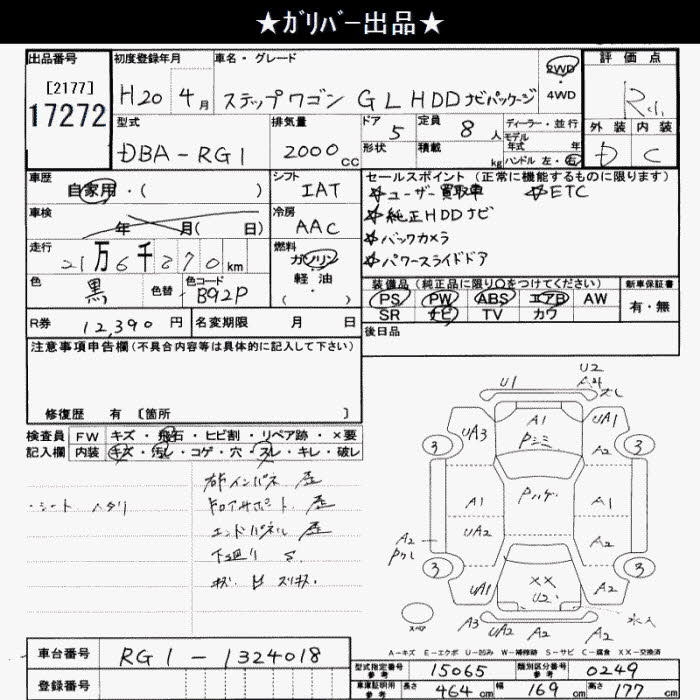 ★ガリバー出品★
出品番号
[2177]
17272
初度登録年月
H20 4月
車名・グレード
ステップワゴン GL HDDナビパッケージ
2WD
4WD
評価点
外装 内装
D C
型式
DBA-RG1
排気量
2000cc
ドア 5
形状
定員 8人
積載 kg
ディーラー・並行
モデル年式 年
ハンドル 左・右
車歴
自家用・( )
シフト
IAT
セールスポイント (正常に機能するものに限ります)
☆ユーザー買取車 ☆ETC
☆純正HDDナビ
☆バックカメラ
☆パワースライドドア
車検
年 月( 日)
冷房
AAC
走行
21万6千270km
燃料
ガソリン
軽油
( )
色
黒
色替
色コード
B92P
装備品 (純正品に限り○をつけてください)
PS PW ABS エアB AW
SR ナビ TV カワ
新車保証書
有・無
R券 12,390円
名変期限 月 日
後日品
注意事項申告欄(不具合内容等は具体的に記入して下さい)
修復歴 有 [箇所 ]
検査員記入欄
FW キズ・飛石・ヒビ割・リペア跡・×要
内装 キズ・汚レ・コゲ・穴・スレ・キレ・破レ
・シート ヘタリ
エンドパネル 歪
下廻り S
U1
U2
UA3
A1
UA1
3
3
A2
A1
A1
UA2
A2
A2
3
3
UA1
××
U2
A2
A3
UA2
A2
A2
スペア
A-キズ E-エクボ U-凹み W-補修跡 S-サビ C-腐食 XX-交換済
車台番号
RG1-1324018
登録番号
型式指定番号 参考 15065
類別区分番号 参考 0249
車庫証明用 参考 長さ 464cm 幅 169cm 高さ 177cm